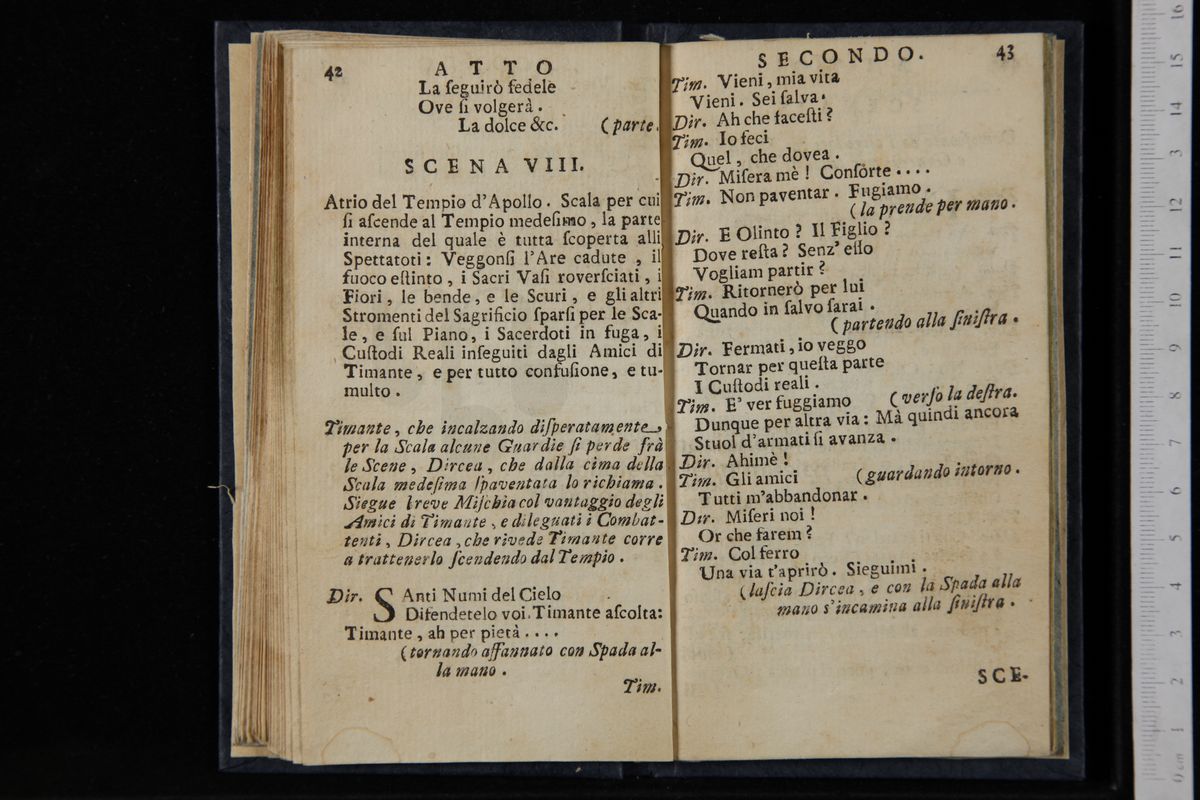 42 ATTO
La ſeguirò fedele
Ove ſi volgerà.
La dolce &c. (parte.
SCENA VIII.
Atrio del Tempio d'Apollo. Scala per cui
ſi aſcende al Tempio medeſimo, la parte
interna del quale è tutta ſcoperta alli
Spettatoti: Veggonſi l'Are cadute, il
fuoco eſtinto, i Sacri Vaſi roverſciati, i
Fiori, le bende, e le Scuri, e gli altri
Stromenti del Sagrificio ſparſi per le Sca-
le, e ſul Piano, i Sacerdoti in fuga, i
Cuſtodi Reali inſeguiti dagli Amici di
Timante, e per tutto confuſione, e tu-
multo.
Timante, che incalzando diſperatamente,
per la Scala alcune Guardie ſi perde frà
le Scene, Dircea, che dalla cima della
Scala medeſima ſpaventata lo richiama.
Siegue breve Miſchia col vantaggio degli
Amici di Timante, e dileguati i Combat-
tenti, Dircea, che rivede Timante corre
a trattenerlo ſcendendo dal Tempio.
Dir. SAnti Numi del Cielo
Difendetelo voi. Timante aſcolta:
Timante, ah per pietà....
(tornando affannato con Spada al-
la mano.
Tim.
SECONDO. 43
Tim. Vieni, mia vita
Vieni. Sei ſalva.
Dir. Ah che faceſti?
Tim. Io feci
Quel, che dovea.
Dir. Miſera mè! Conſorte....
Tim. Non paventar. Fugiamo.
(la prende per mano.
Dir. E Olinto? Il Figlio?
Dove reſta? Senz' eſſo
Vogliam partir?
Tim. Ritornerò per lui
Quando in ſalvo ſarai.
(partendo alla ſiniſtra.
Dir. Fermati, io veggo
Tornar per queſta parte
I Cuſtodi reali.
Tim. E' ver fuggiamo (verſo la deſtra.
Dunque per altra via: Mà quindi ancora
Stuol d'armati ſi avanza.
Dir. Ahimè!
Tim. Gli amici (guardando intorno.
Tutti m'abbandonar.
Dir. Miſeri noi!
Or che farem?
Tim. Col ferro
Una via t'aprirò. Sieguimi.
(laſcia Dircea, e con la Spada alla
mano s'incamina alla ſiniſtra.
SCE-
16
15
14
13
12
11
10
9
8
7
6
5
4
3
2
1
0 cm